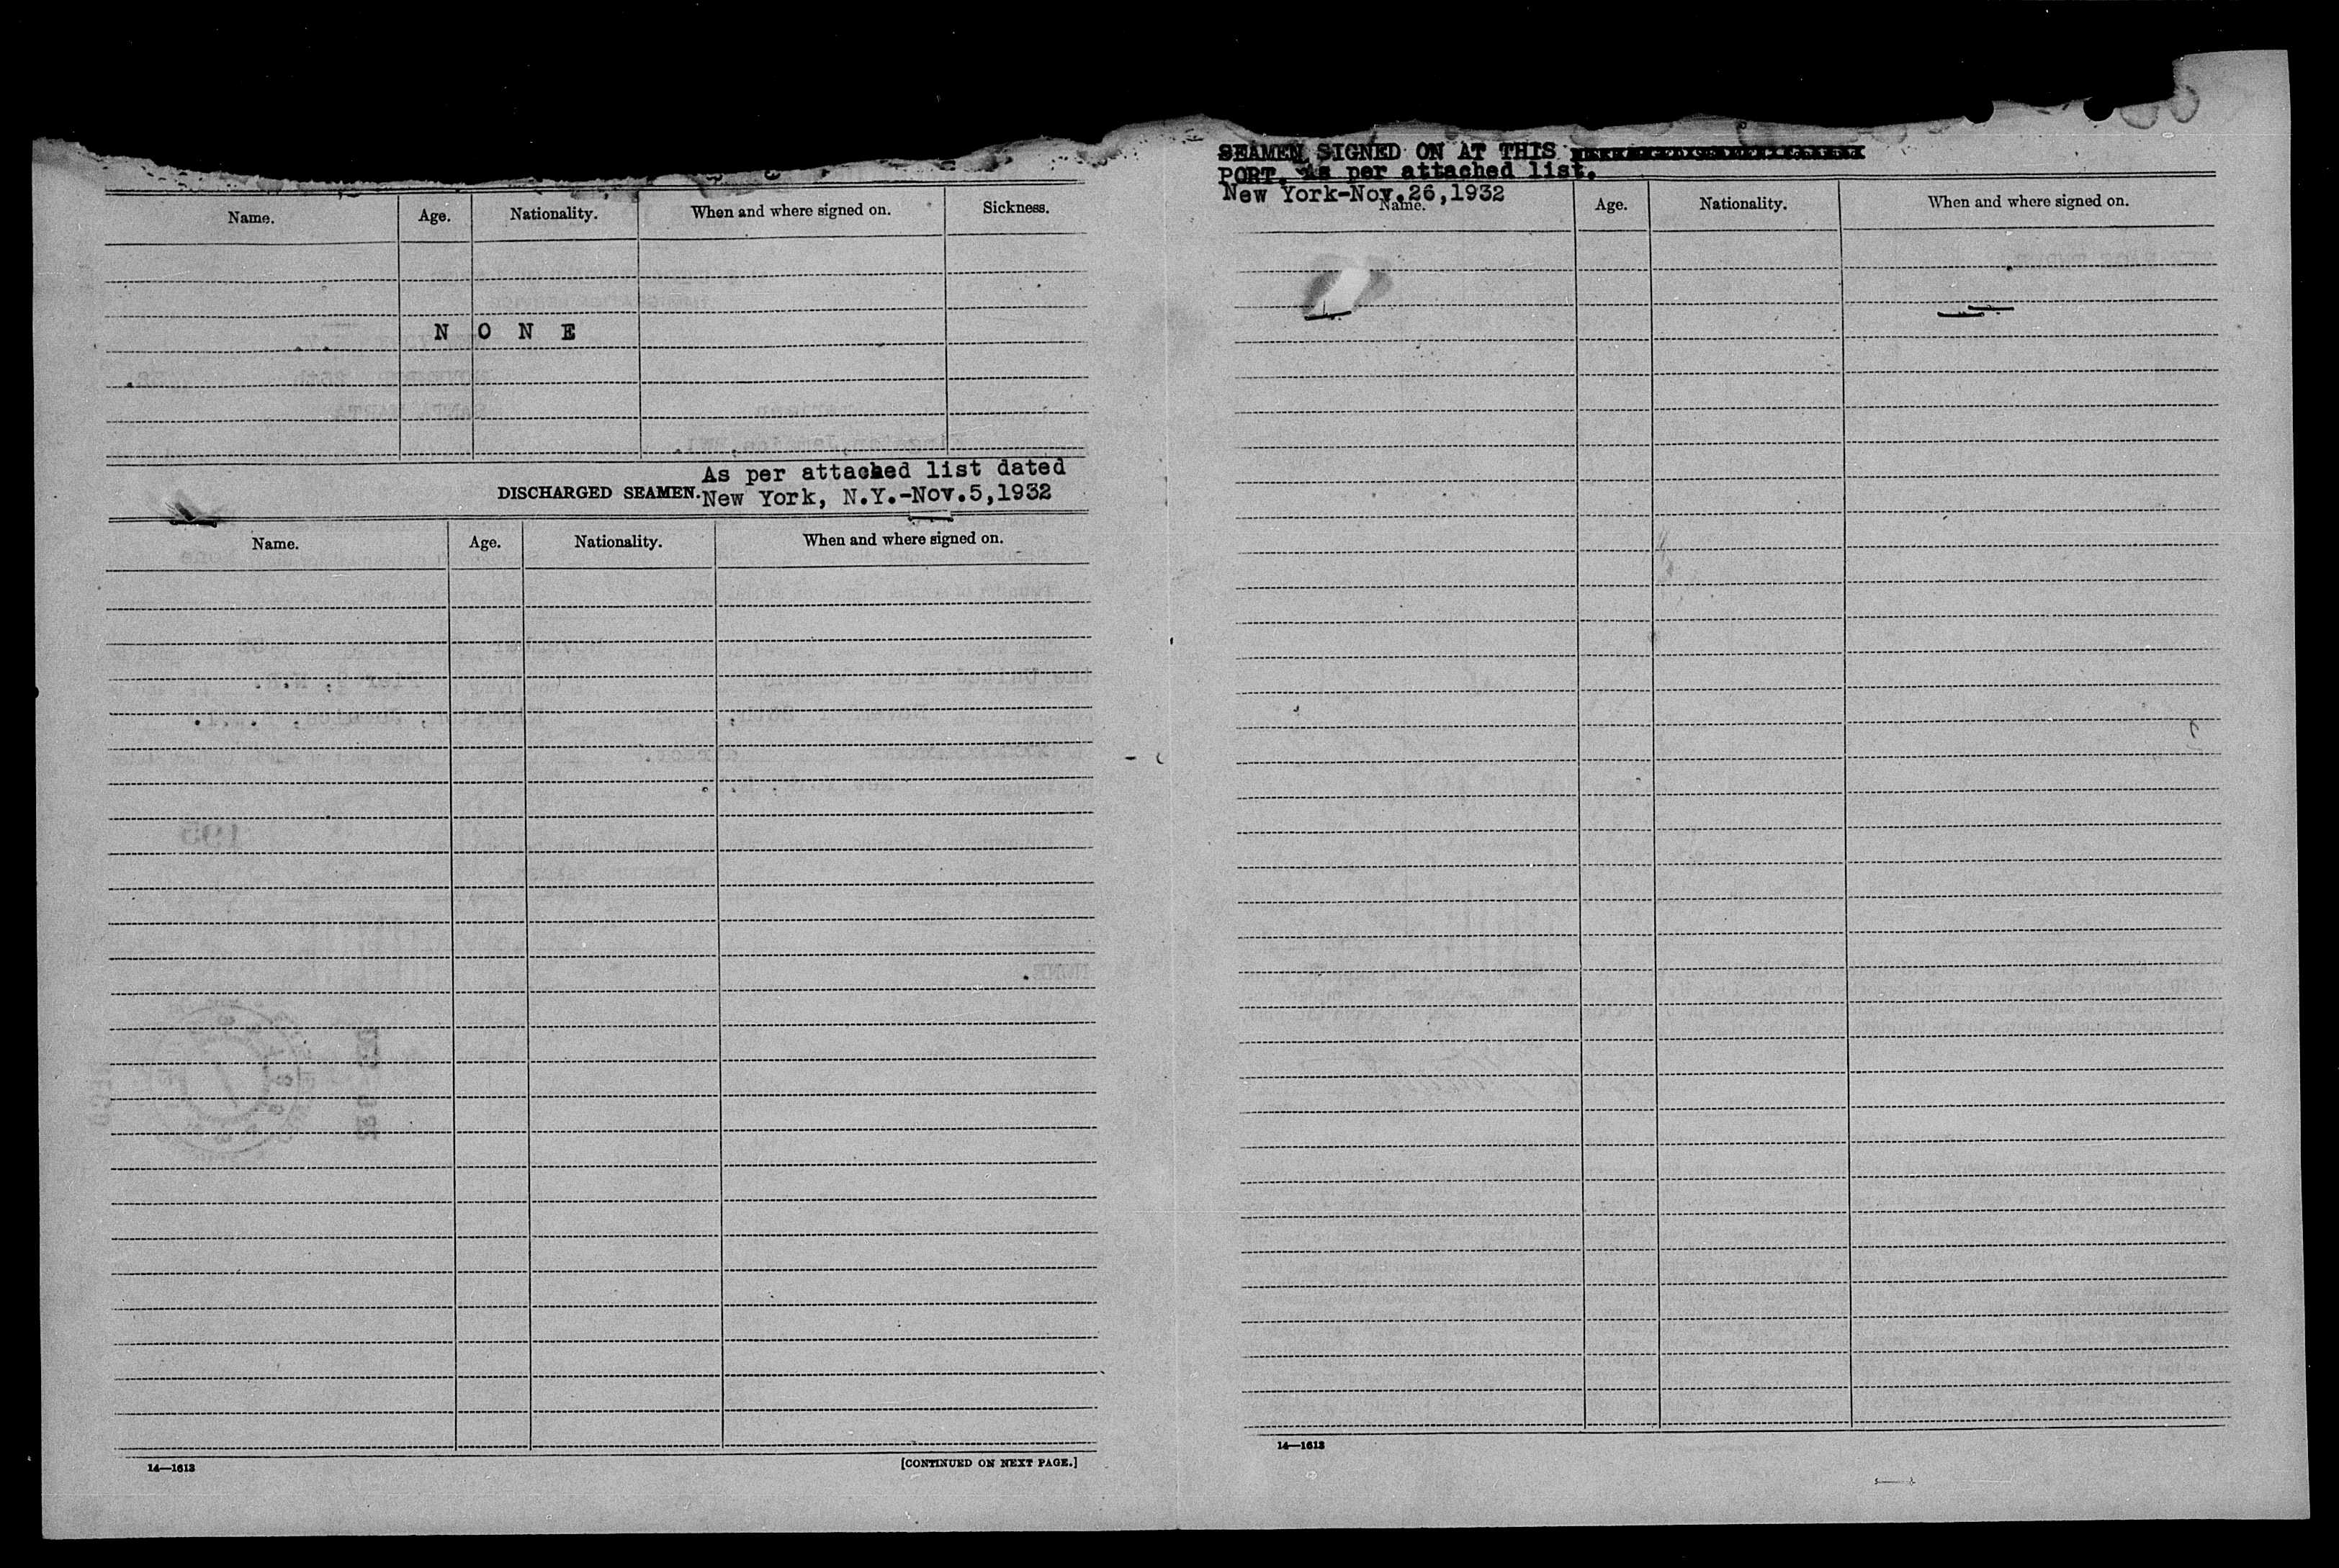 Name. Age. Nationality. When and where signed on. Sickness.
N O N E
As per attached list dated
DISCHARGED SEAMEN. New York, N.Y.-Nov.5,1932
Name. Age. Nationality. When and where signed on.
14—1613 [CONTINUED ON NEXT PAGE.]
SEAMEN SIGNED ON AT THIS
PORT. As per attached list.
New York-Nov.26,1932
Name. Age. Nationality. When and where signed on.
14—1613